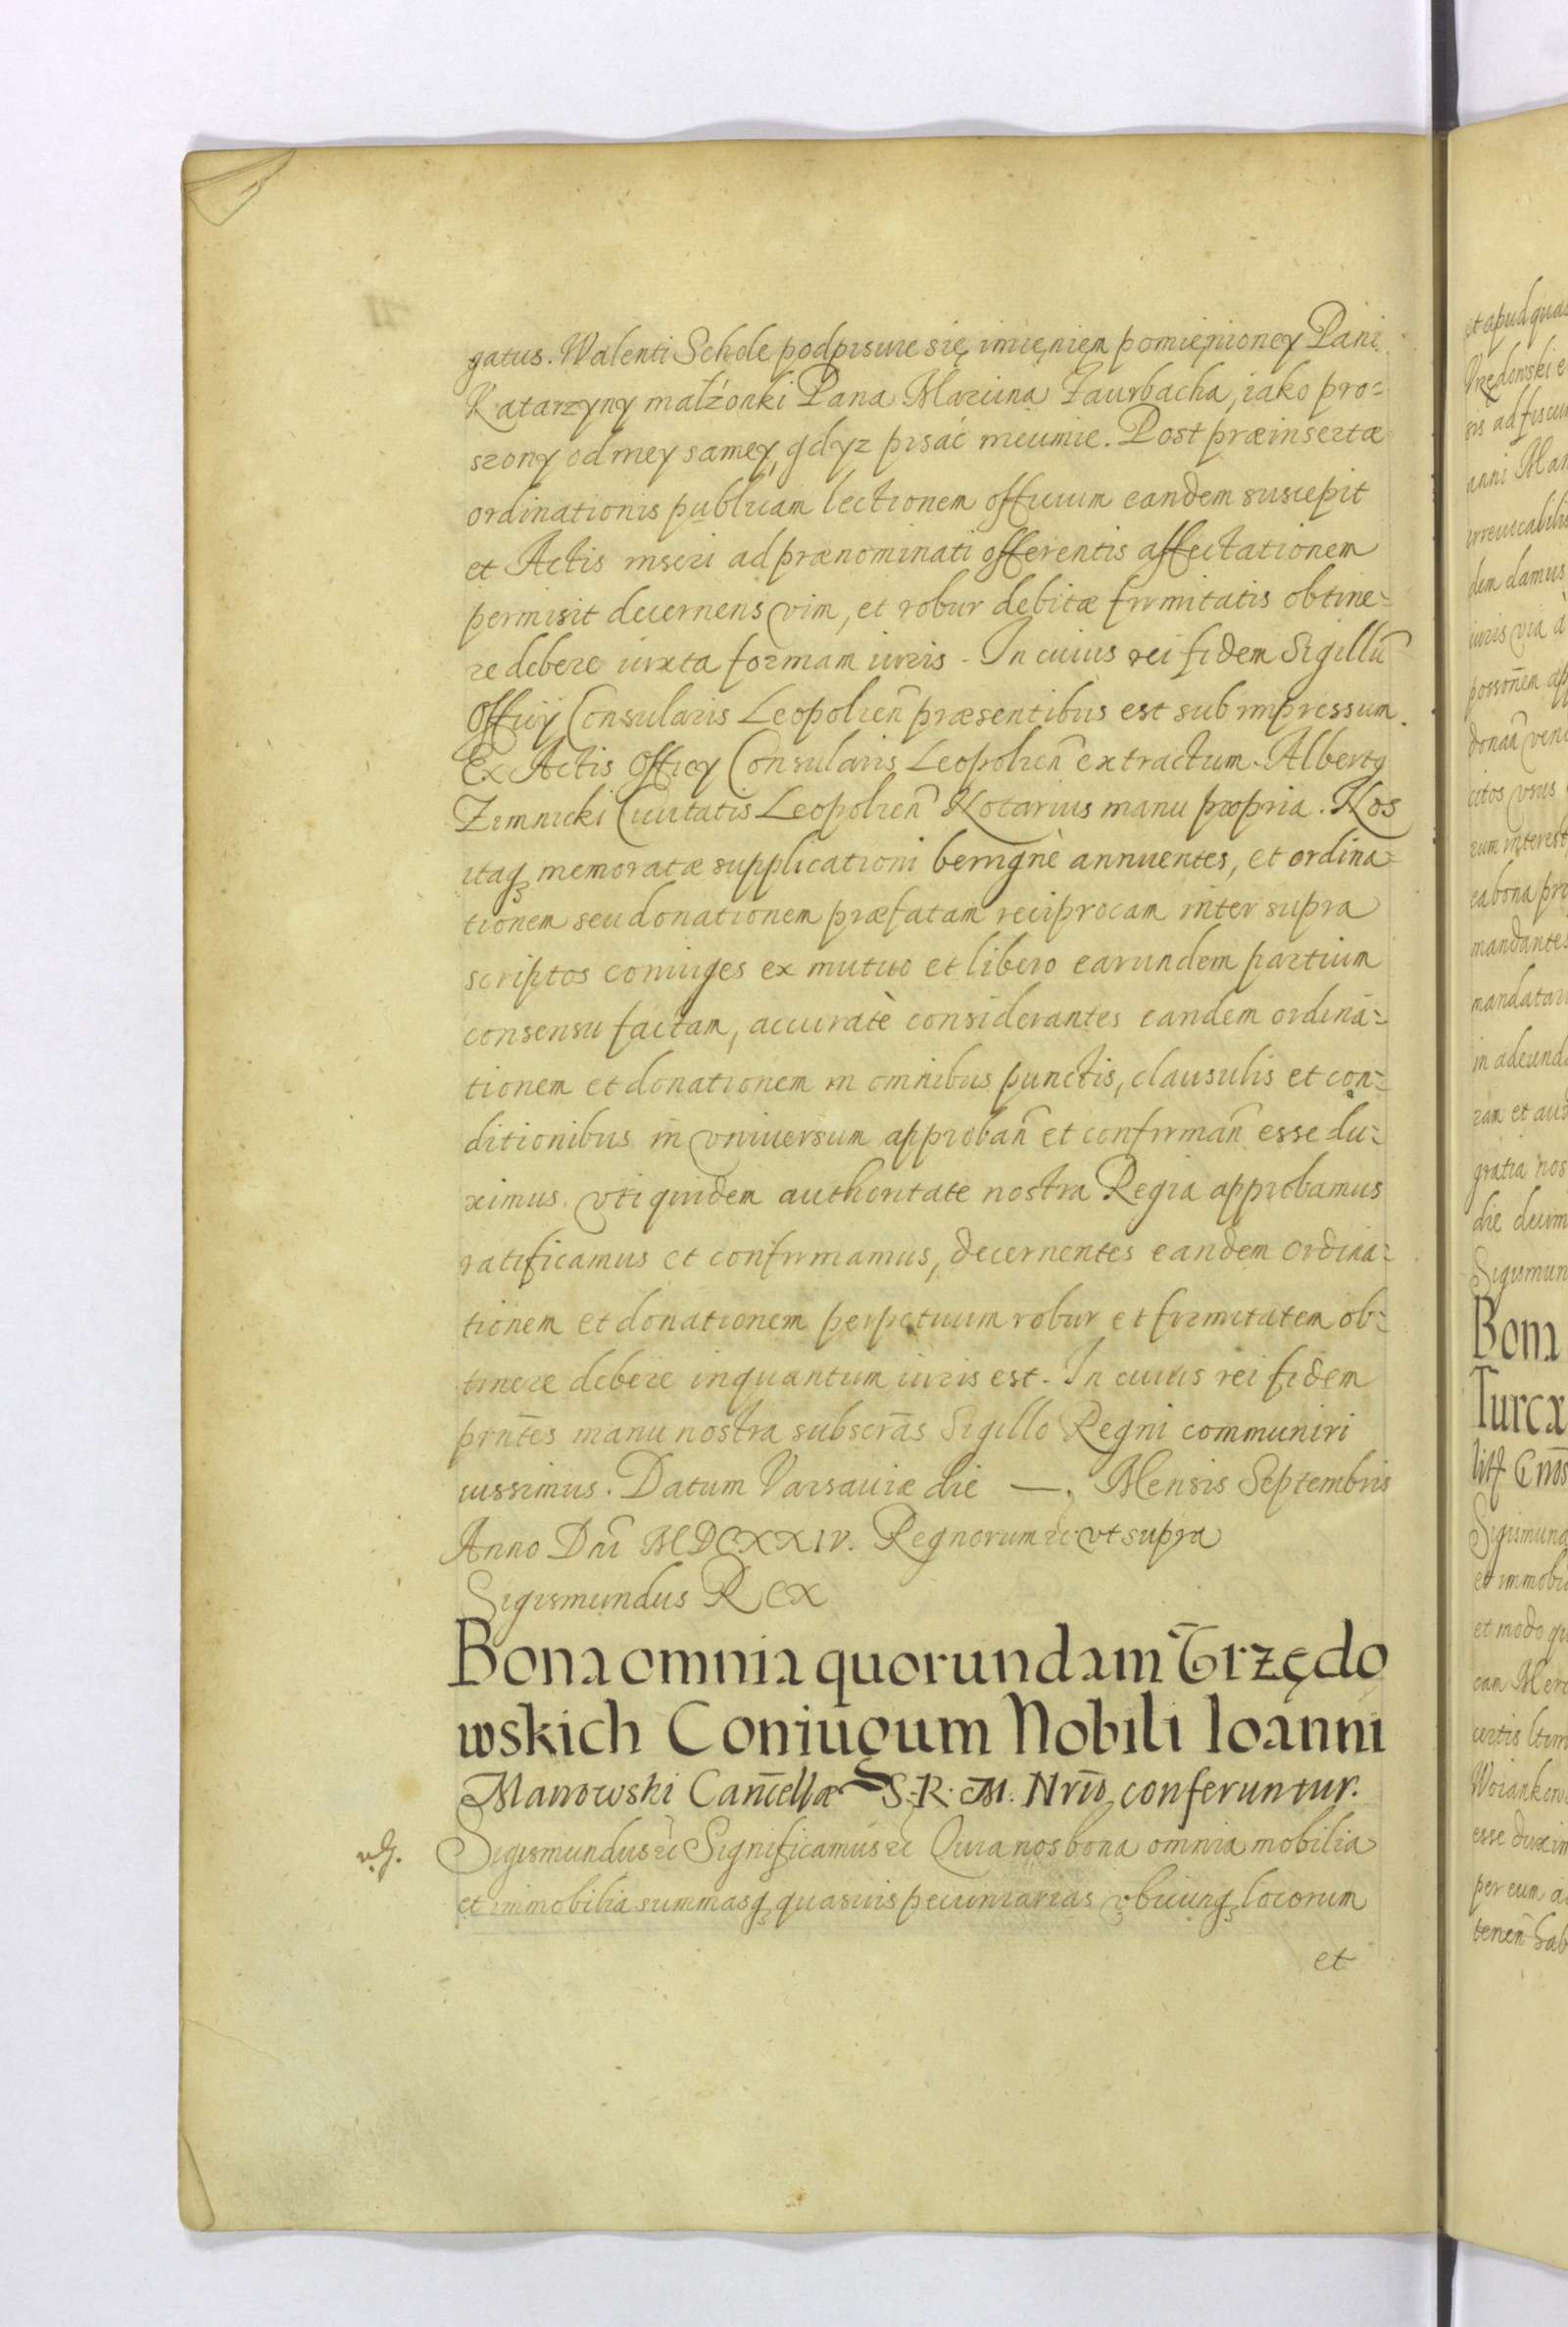 gatus. Walenti Schole podpisuie się imięnięm pomięnioney Pani
Katarzyny małżonki Pana Marcina Zaurbacha, iako pro=
szony od niey samey, gdyz pisać nieumie. Post præinsertæ
ordinationis publicam lectionem officium eandem suscepit
et Actis inseri ad prænominati offerentis affectationem
permisit decernens vim, et robur debitæ firmitatis obtine=
re debere iuxta formam iuris. In cuius rei fidem Sigillū
Officij Consularis Leopolien̄ præsentibus est subimpressum.
Ex Actis Officij Consularis Leopolien̄ extractum. Albertꝰ
Zimnicki Ciuitatis Leopolien̄ Notarius manu propria. Nos
itaqꝫ memoratæ supplicationi benignè annuentes, et ordina=
tionem seu donationem præfatam reciprocam inter supra
scriptos coniuges ex mutuo et libero earundem partium
consensu factam, accuratè considerantes eandem ordina=
tionem et donationem in omnibus punctis, clausulis et con=
ditionibus in vniuersum approban̄ et confirman̄ esse du=
ximus. vti quidem authoritate nostra Regia approbamus
ratificamus et confirmamus, decernentes eandem ordina=
tionem et donationem perpetuum robur et firmitatem ob=
tinere debere inquantum iuris est. In cuius rei fidem
prn̄tes manu nostra subscr̄as Sigillo Regni communiri
iussimus. Datum Varsauiæ die —. Mensis Septembris
Anno Dn̄i MDCXXIV. Regnorum &c vt supra
Sigismundus Rex
Bona omnia quorundam Vrzędo
wskich Coniugum Nobili Ioanni
Manowski Can̄cellæ S. R. M. Nrio conferuntur.
Sigismundus &c Significamus &c Quia nos bona omnia mobilia
et immobilia summasqꝫ quasuis pecuniarias vbicunqꝫ locorum
et